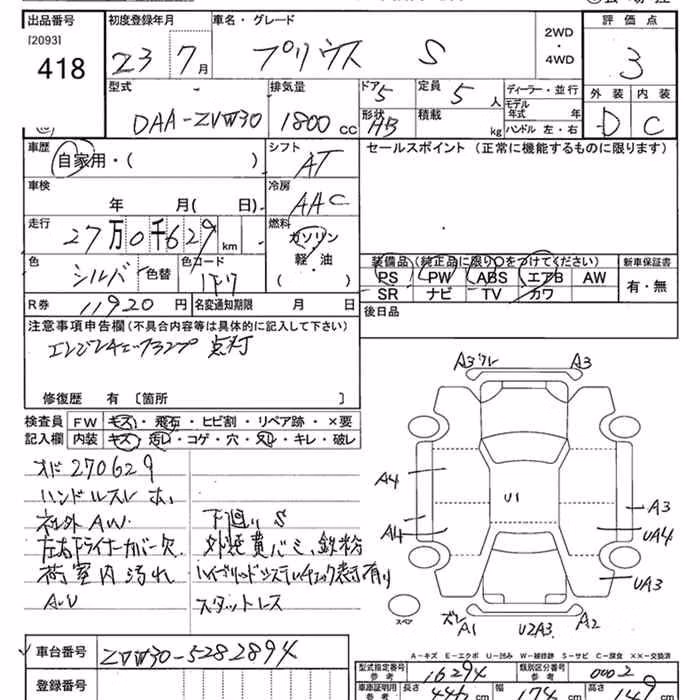 出品番号
[2093]
418
初度登録年月
23 7月
車名・グレード
プリウス S
2WD
・
4WD
評価点
3
外装 内装
D C
型式
DAA-ZVW30
排気量
1800 cc
ドア
5
形状
HB
定員
5 人
積載
kg
ディーラー・並行
モデル
年式 年
ハンドル 左・右
車歴
自家用・( )
シフト
AT
セールスポイント (正常に機能するものに限ります)
車検
年 月( 日)
冷房
AAC
走行
27万0千629 km
燃料
ガソリン
軽・油
( )
色
シルバ
色替
色コード
1F7
装備品 (純正品に限り○をつけてください)
PS PW ABS エアB AW
SR ナビ TV カワ
新車保証書
有・無
R券 11920 円
名変通知期限 月 日
後日品
注意事項申告欄(不具合内容等は具体的に記入して下さい)
エンジンチェックランプ 点灯
修復歴 有 [箇所 ]
検査員
記入欄
FW キズ・飛石・ヒビ割・リペア跡・×要
内装 キズ・汚レ・コゲ・穴・スレ・キレ・破レ
オド 270629
ハンドルスレ
社外AW
左右ドライナーカバー欠
荷室内汚れ
下廻り S
ハイブリッドシステムチェック表示有り
スタットレス
A3ワレ A3
A4
U1
A3
A4
UA4
UA3
スペア
ズレ
A1
U2A3
A2
A-キズ E-エクボ U-凹み W-補修跡 S-サビ C-腐食 XX-交換済
車台番号
ZVW30-5282894
登録番号
型式指定番号
参考
16294
類別区分番号
参考
0002
車庫証明用
参考
長さ
446 cm
幅
174 cm
高さ
149 cm